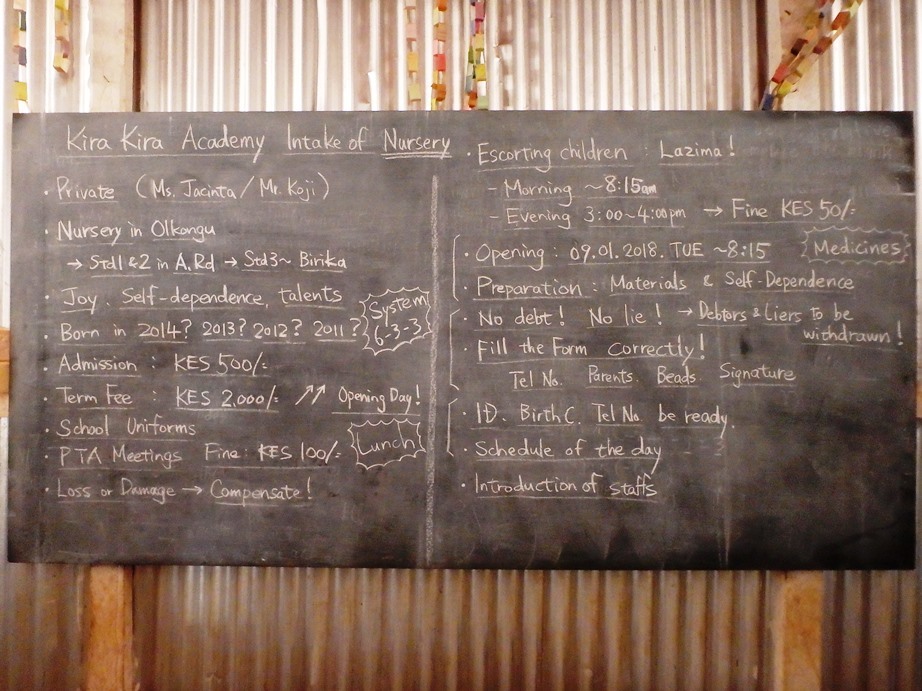 Kira Kira Academy Intake of Nursery
· Private (Ms. Jacinta / Mr. Koji)
· Nursery in Olkongu
→ Std1&2 in A.Rd → Std3~ Birika
· Joy. Self-dependence, talents
· Born in 2014? 2013? 2012? 2011?
System
6-3-3
· Admission : KES 500/=
· Term Fee : KES 2,000/= ↗↗ Opening Day!
· School Uniforms
· PTA Meetings Fine: KES 100/=
Lunch
· Loss or Damage → Compensate!
· Escorting children : Lazima!
- Morning ~8:15am
- Evening 3:00~4:00pm → Fine KES 50/=
· Opening : 09.01.2018. TUE ~8:15
Medicines
· Preparation : Materials & Self-Dependence
· No debt! No lie! → Debtors & Liers To be
withdrawn!
· Fill the Form Correctly!
Tel No. Parents. Beads. Signature
· ID. Birth C. Tel No. be ready.
· Schedule of the day
· Introduction of staffs